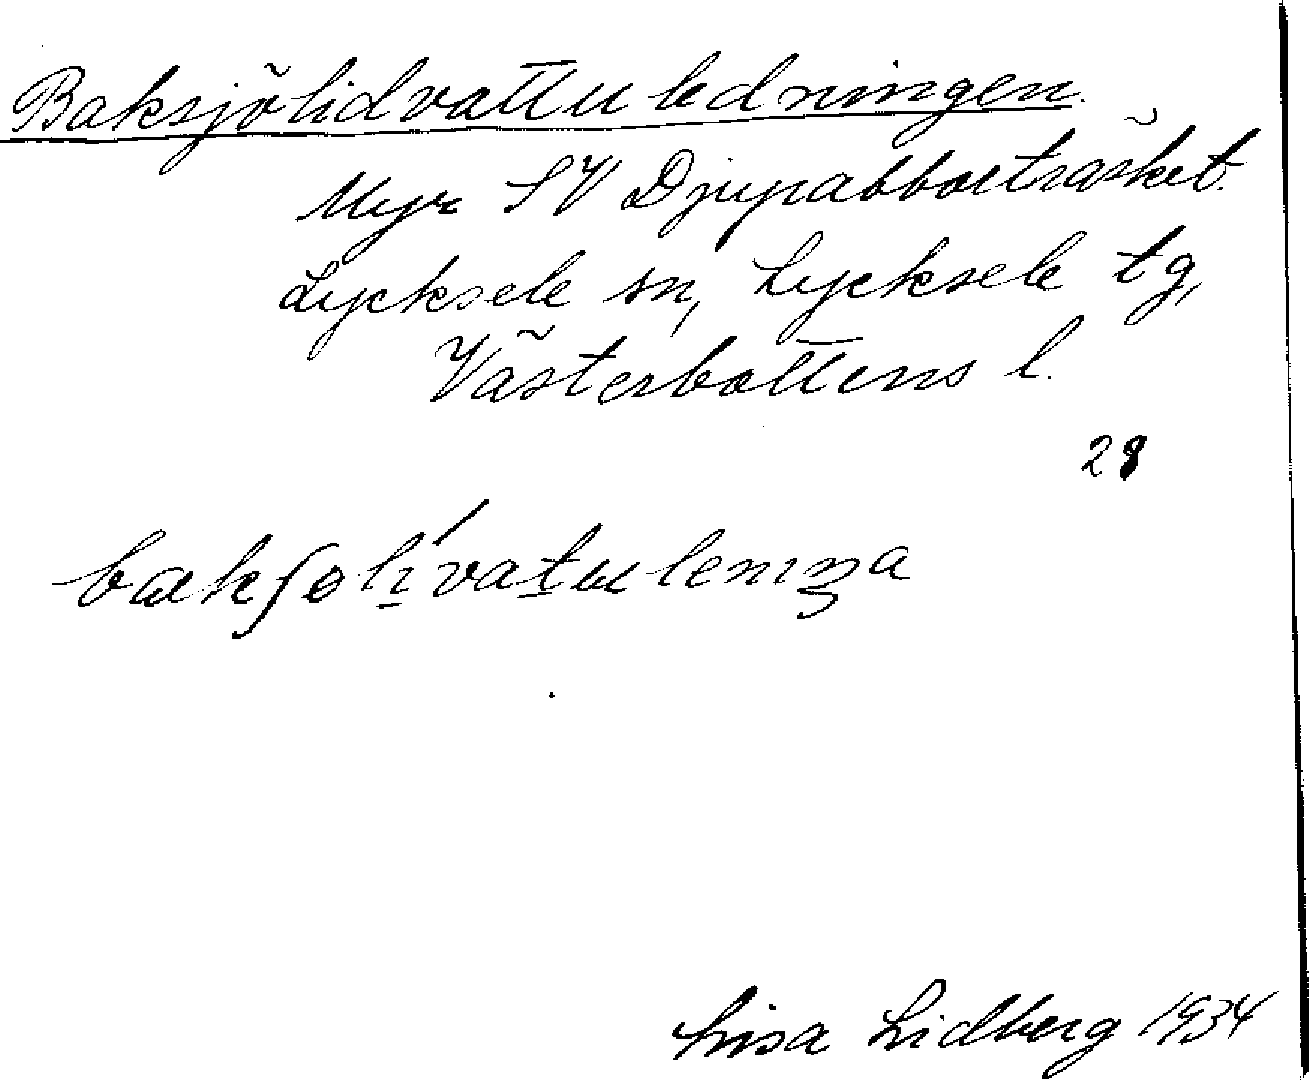 Baksjölidvattuledningen.
Myr SV Djupabborrträsket.
Lycksele sn, Lycksele tg,
Västerbottens l.
28
bakʃolívatulenɪŋa
Lisa Lidberg 1934